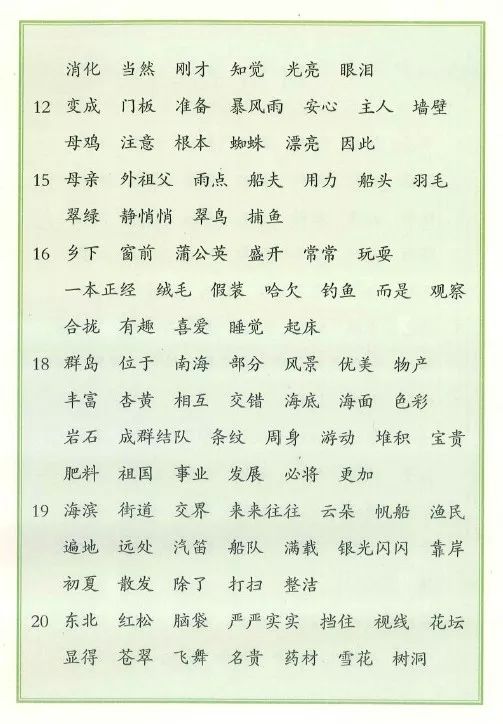 消化 当然 刚才 知觉 光亮 眼泪
12 变成 门板 准备 暴风雨 安心 主人 墙壁
母鸡 注意 根本 蜘蛛 漂亮 因此
15 母亲 外祖父 雨点 船夫 用力 船头 羽毛
翠绿 静悄悄 翠鸟 捕鱼
16 乡下 窗前 蒲公英 盛开 常常 玩耍
一本正经 绒毛 假装 哈欠 钓鱼 而是 观察
合拢 有趣 喜爱 睡觉 起床
18 群岛 位于 南海 部分 风景 优美 物产
丰富 杏黄 相互 交错 海底 海面 色彩
岩石 成群结队 条纹 周身 游动 堆积 宝贵
肥料 祖国 事业 发展 必将 更加
19 海滨 街道 交界 来来往往 云朵 帆船 渔民
遍地 远处 汽笛 船队 满载 银光闪闪 靠岸
初夏 散发 除了 打扫 整洁
20 东北 红松 脑袋 严严实实 挡住 视线 花坛
显得 苍翠 飞舞 名贵 药材 雪花 树洞